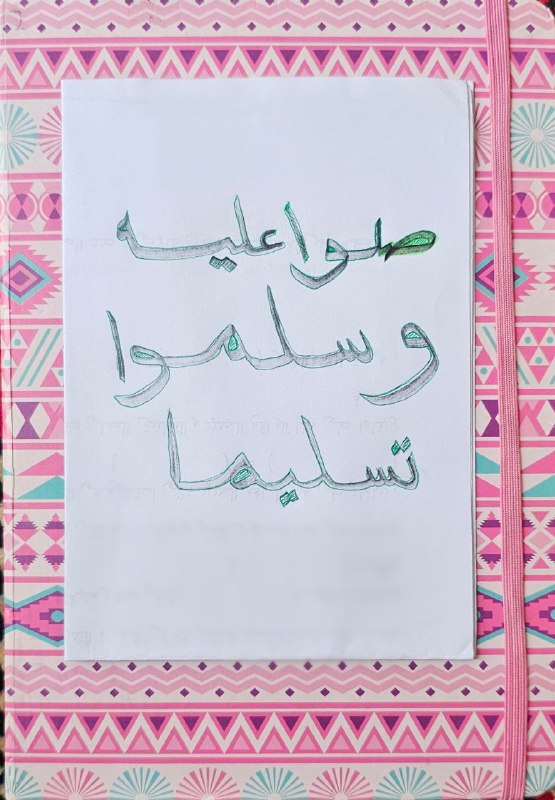 صلوا عليه
وسلموا
تسليما